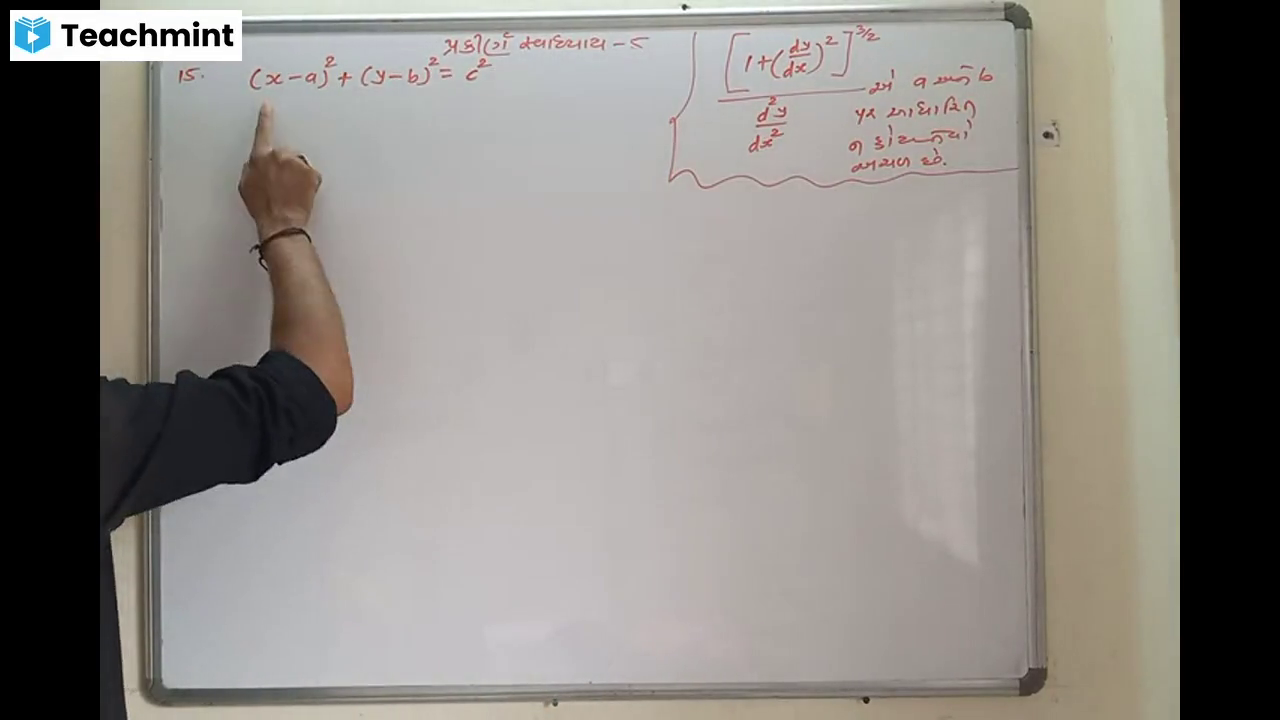 Teachmint
પ્રકીર્ણ સ્વાધ્યાય - 5
15. (x-a)² + (y-b)² = c²
[1+(dy/dx)²]^3/2
d²y/dx²
એ a અને b
પર આધારિત
ન હોય તેવો
અચળ છે.